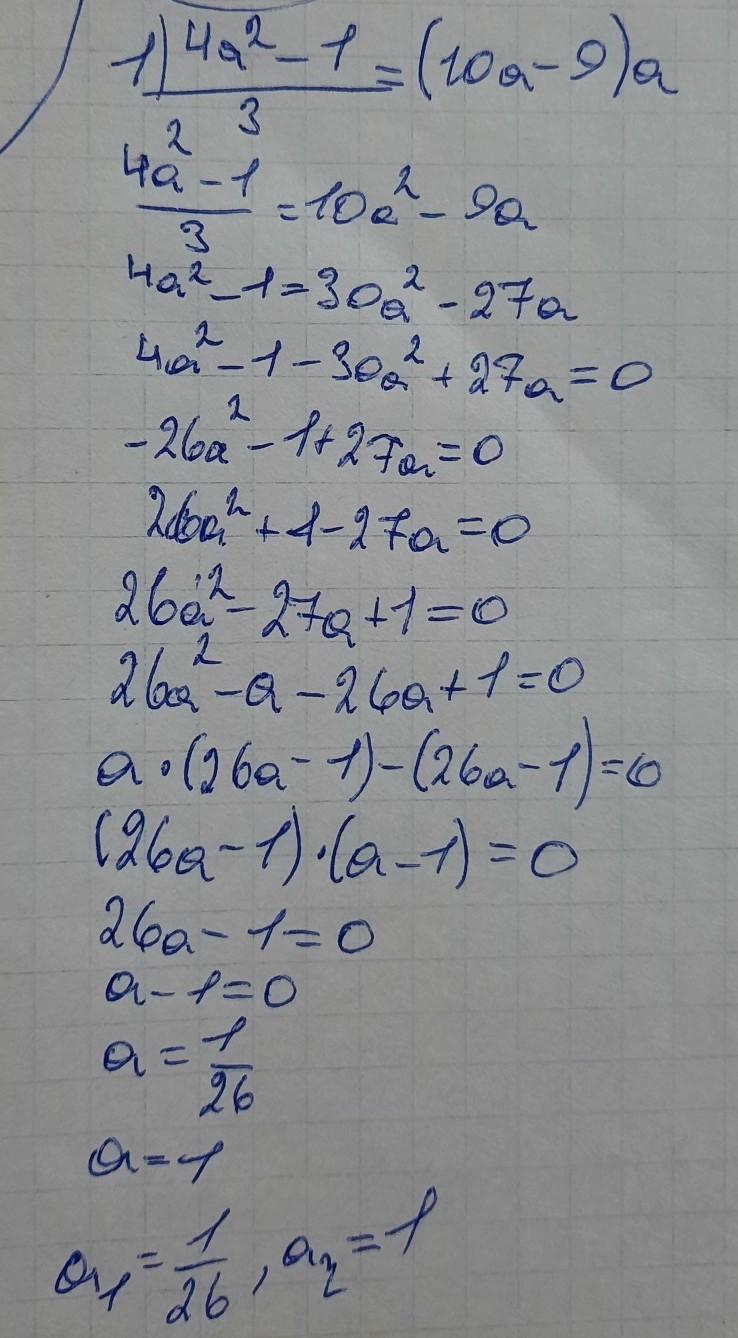 1) (4a² - 1)/3 = (10a - 9)a
(4a² - 1)/3 = 10a² - 9a
4a² - 1 = 30a² - 27a
4a² - 1 - 30a² + 27a = 0
-26a² - 1 + 27a = 0
26a² + 1 - 27a = 0
26a² - 27a + 1 = 0
26a² - a - 26a + 1 = 0
a · (26a - 1) - (26a - 1) = 0
(26a - 1) · (a - 1) = 0
26a - 1 = 0
a - 1 = 0
a = 1/26
a = 1
a₁ = 1/26, a₂ = 1